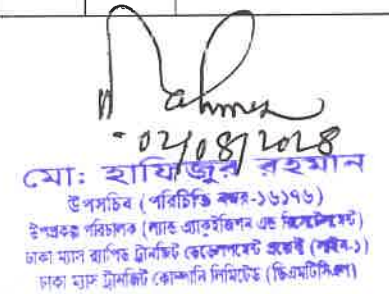 Rahman
০২/০৪/২০২৪
মো: হাফিজুর রহমান
উপসচিব (পরিচিতি নম্বর-১৬১৭৬)
উপপ্রকল্প পরিচালক (ল্যান্ড এ্যাকুইজিশন এন্ড রিসেটেলমেন্ট)
ঢাকা ম্যাস র‍্যাপিড ট্রানজিট ডেভেলপমেন্ট প্রজেক্ট (লাইন-১)
ঢাকা ম্যাস ট্রানজিট কোম্পানি লিমিটেড (ডিএমটিসিএল)